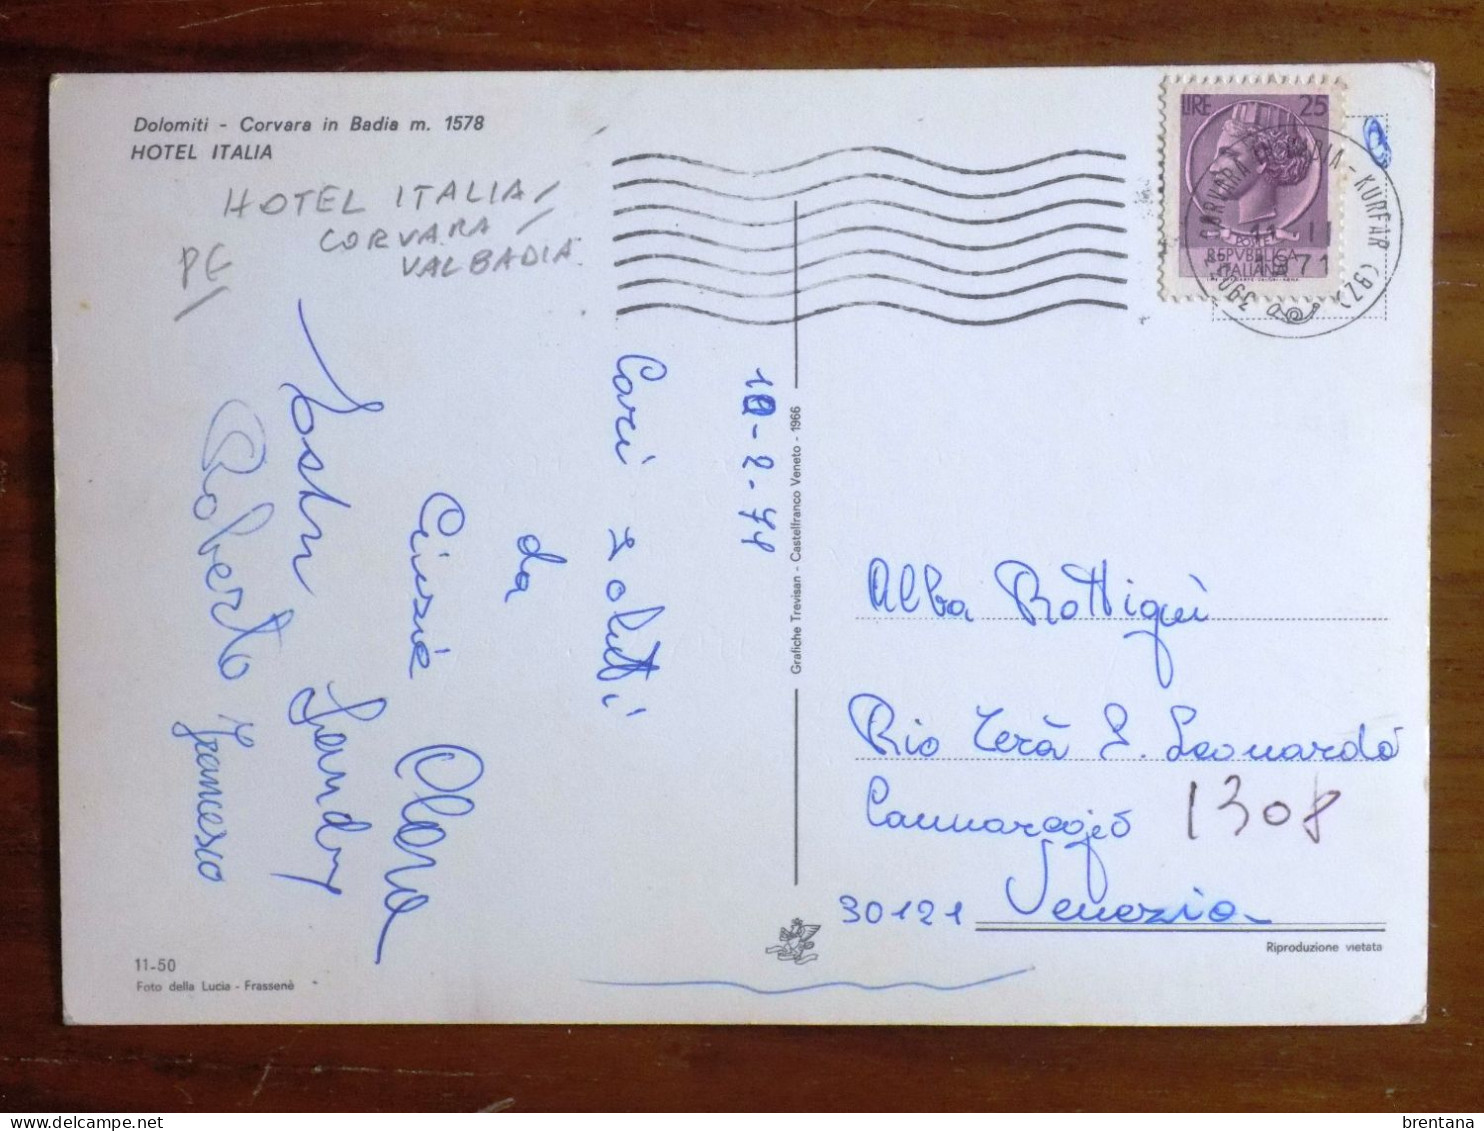 Dolomiti - Corvara in Badia m. 1578
HOTEL ITALIA
HOTEL ITALIA/
CORVARA/
VALBADIA
PE/
LIRE 25
REPVBBLICA
ITALIANA
CORVARA IN BADIA - KURFAR (BZ)
11-II
1971
10-2-71
Cari Saluti
da
Cinzia Clara
Sandra
Roberto Francesco
Grafiche Trevisan - Castelfranco Veneto - 1966
Alba Rottigni
Rio Terà S. Leonardo
Cannaregio 1308
30121 Venezia
Riproduzione vietata
11-50
Foto della Lucia - Frassenè
brentana